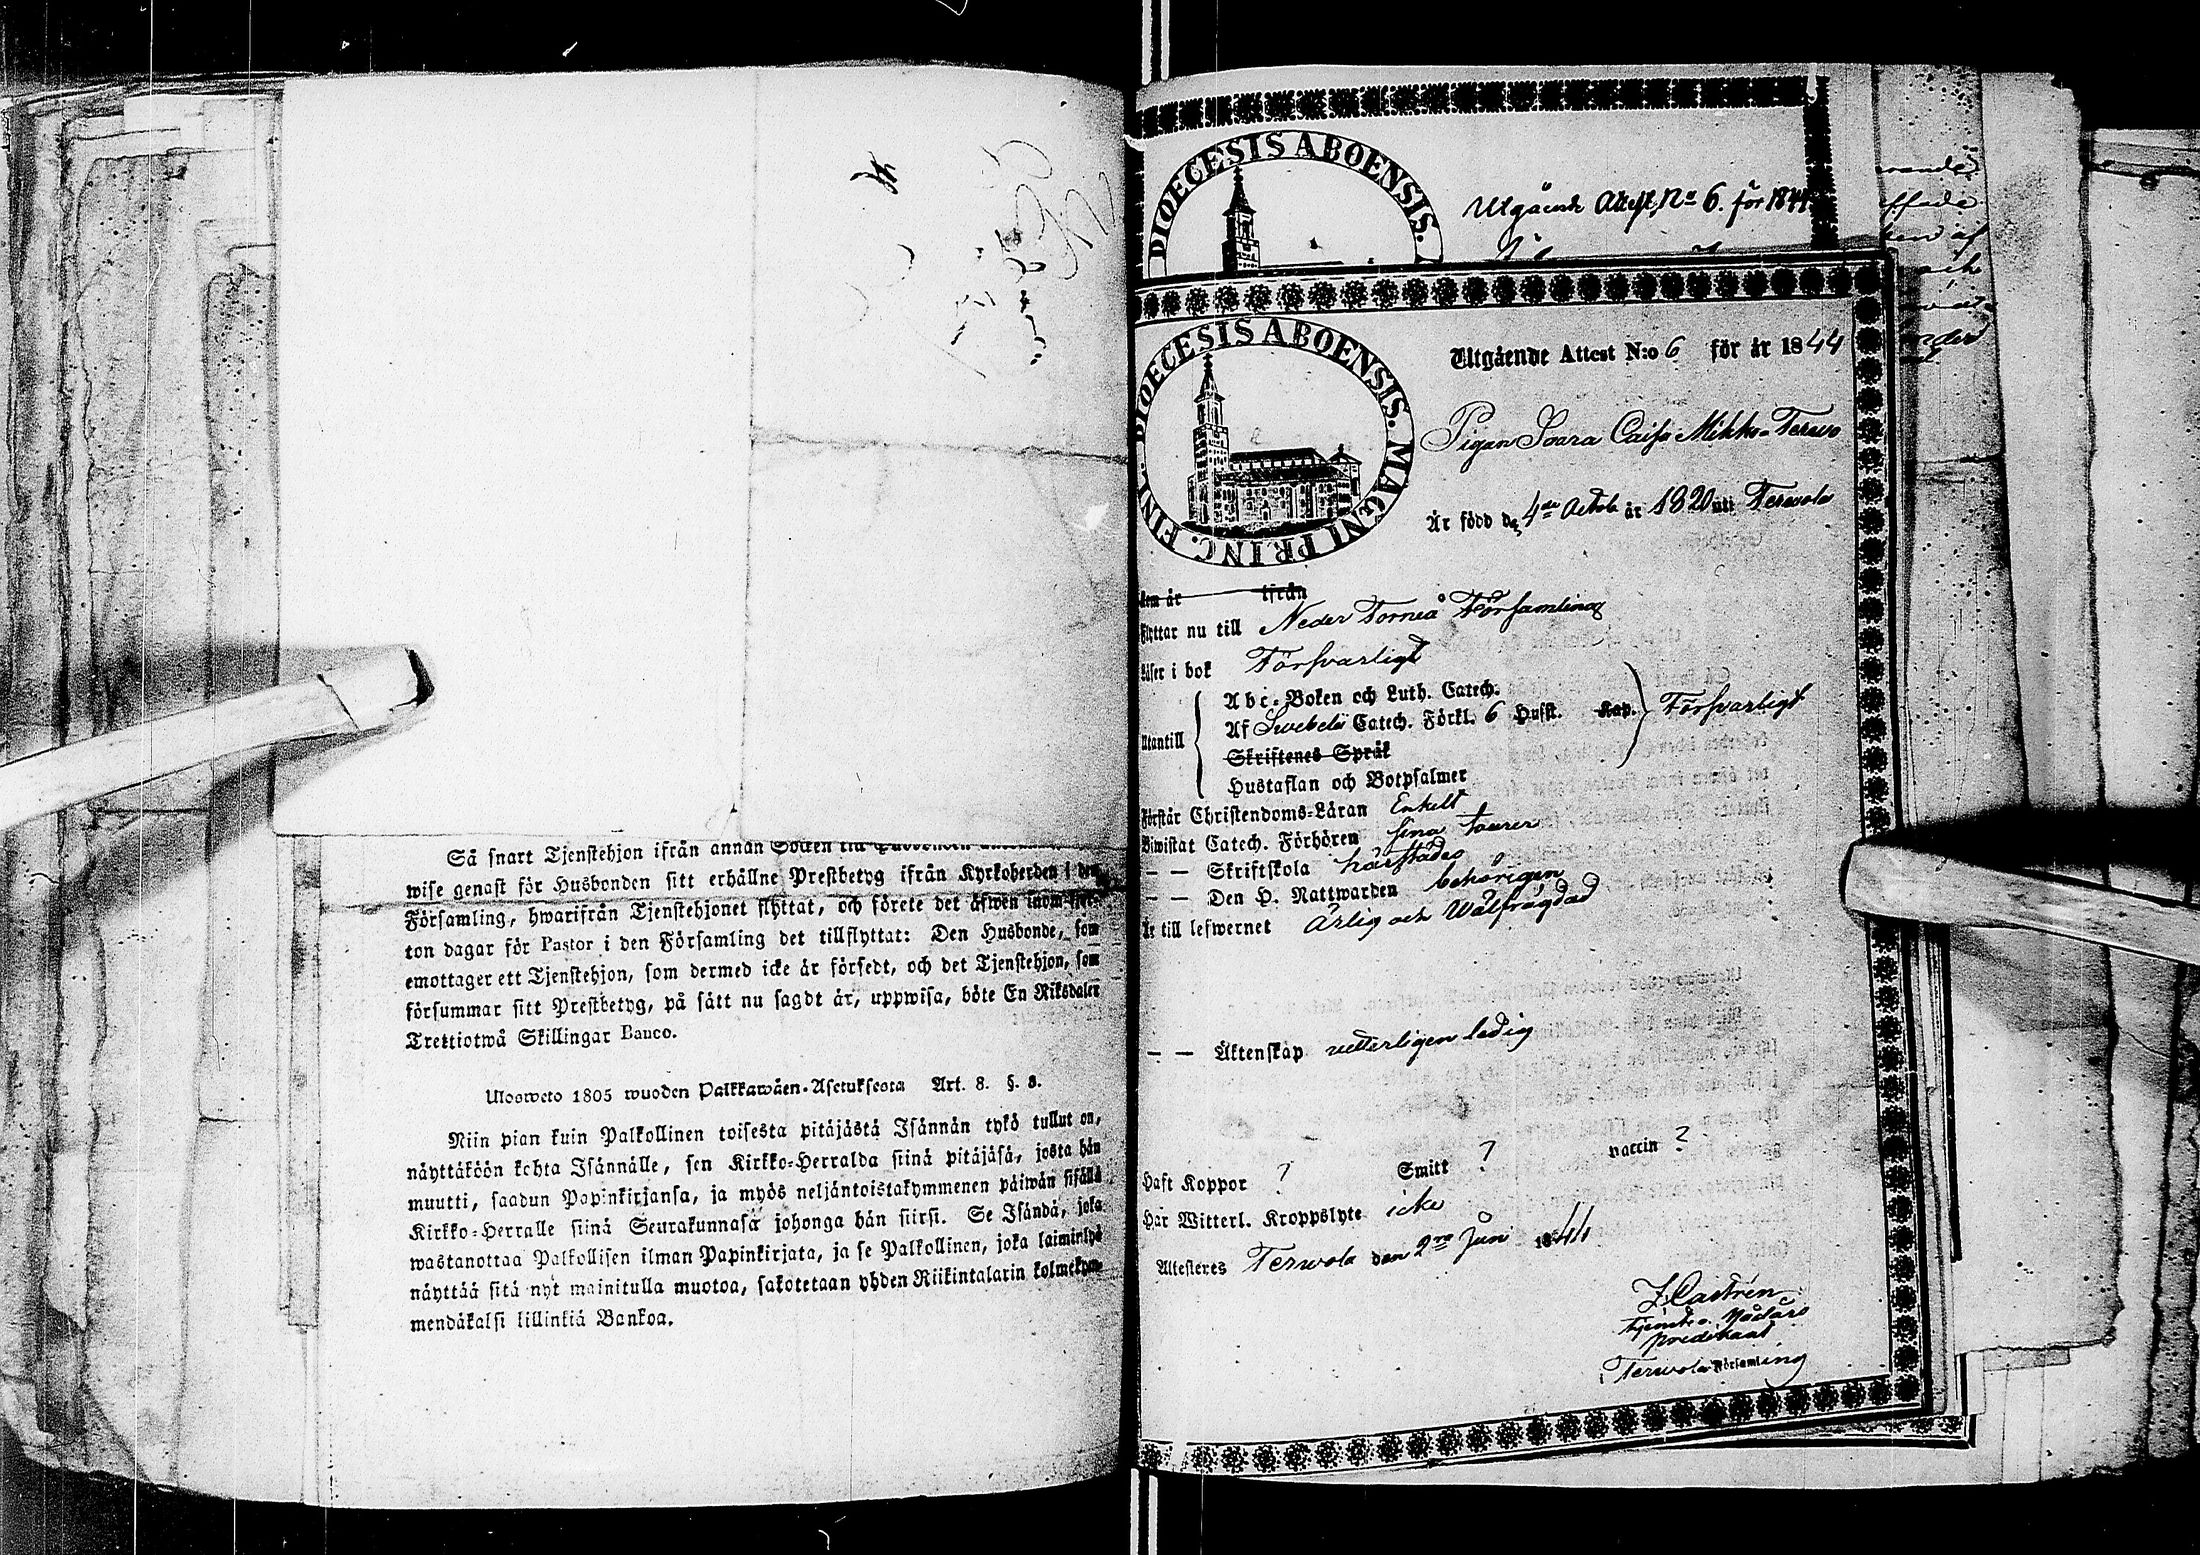 Så snart Tjenstehjon ifrån annan Socken till
wise genast för Husbonden sitt erhållne Prestbetyg ifrån Kyrkoherden i den
Församling, hwarifrån Tjenstehjonet flyttat, och förete det äfwen inom fjor-
ton dagar för Pastor i den Församling det tillflyttat: Den Husbonde, som
emottager ett Tjenstehjon, som dermed icke är försedt, och det Tjenstehjon, som
försummar sitt Prestbetyg, på sätt nu sagdt är, uppwisa, böte En Riksdaler
Trettiotwå Skillingar Banco.
Ulosweto 1805 wuoden Palkkawäen-Asetuksesta Art. 8. §. 3.
Niin pian kuin Palkollinen toisesta pitäjästä Isännän tykö tullut on,
näyttäköön kohta Isännälle, sen Kirkko-Herralda siinä pitäjäsä, josta hän
muutti, saadun Papinkirjansa, ja myös neljäntoistakymmenen päiwän sisällä
Kirkko-Herralle siinä Seurakunnasa johonga hän siirsi. Se Isändä, joka
wastanottaa Palkollisen ilman Papinkirjata, ja se Palkollinen, joka laiminlyö
näyttää sitä nyt mainitulla muotoa, sakotetaan yhden Riikintalarin kolmekym-
mendäkaksi killinkiä Bankoa.
DIOECESIS ABOENSIS.
Utgående Attest No 6. för 1844
DIOECESIS ABOENSIS. MAGNI PRINC. FINL.
Utgående Attest N:o 6 för år 1844
Pigan Saara Caisa Mikko-Terwo
Är född d. 4de Octob år 1820 uti Terwola
kom år ifrån
Flyttar nu till Neder Torneå Församling
Läser i bok Försvarligt
Abc-Boken och Luth. Catech.
Utantill Af Swebelii Catech. Förkl. 6 Hufst. Kap. Försvarligt
Skriftenes Språk
Hustaflan och Botpsalmer
Förstår Christendoms-Läran Enkelt
Biwistat Catech. Förhören sina tourer
— — Skriftskola härstädes
— — Den H. Nattwarden behörigen
Är till lefwernet Ärlig och Wälfrägdad
— — Äktenskap vetterligen ledig
Haft Koppor ? Smitt ? vaccin ?
Har Witterl. Kroppslyte icke
Attesteres Terwola den 2ra Juni 1844
J Castrén
tjenstg. Nådårs
predikant
Terwola Församling